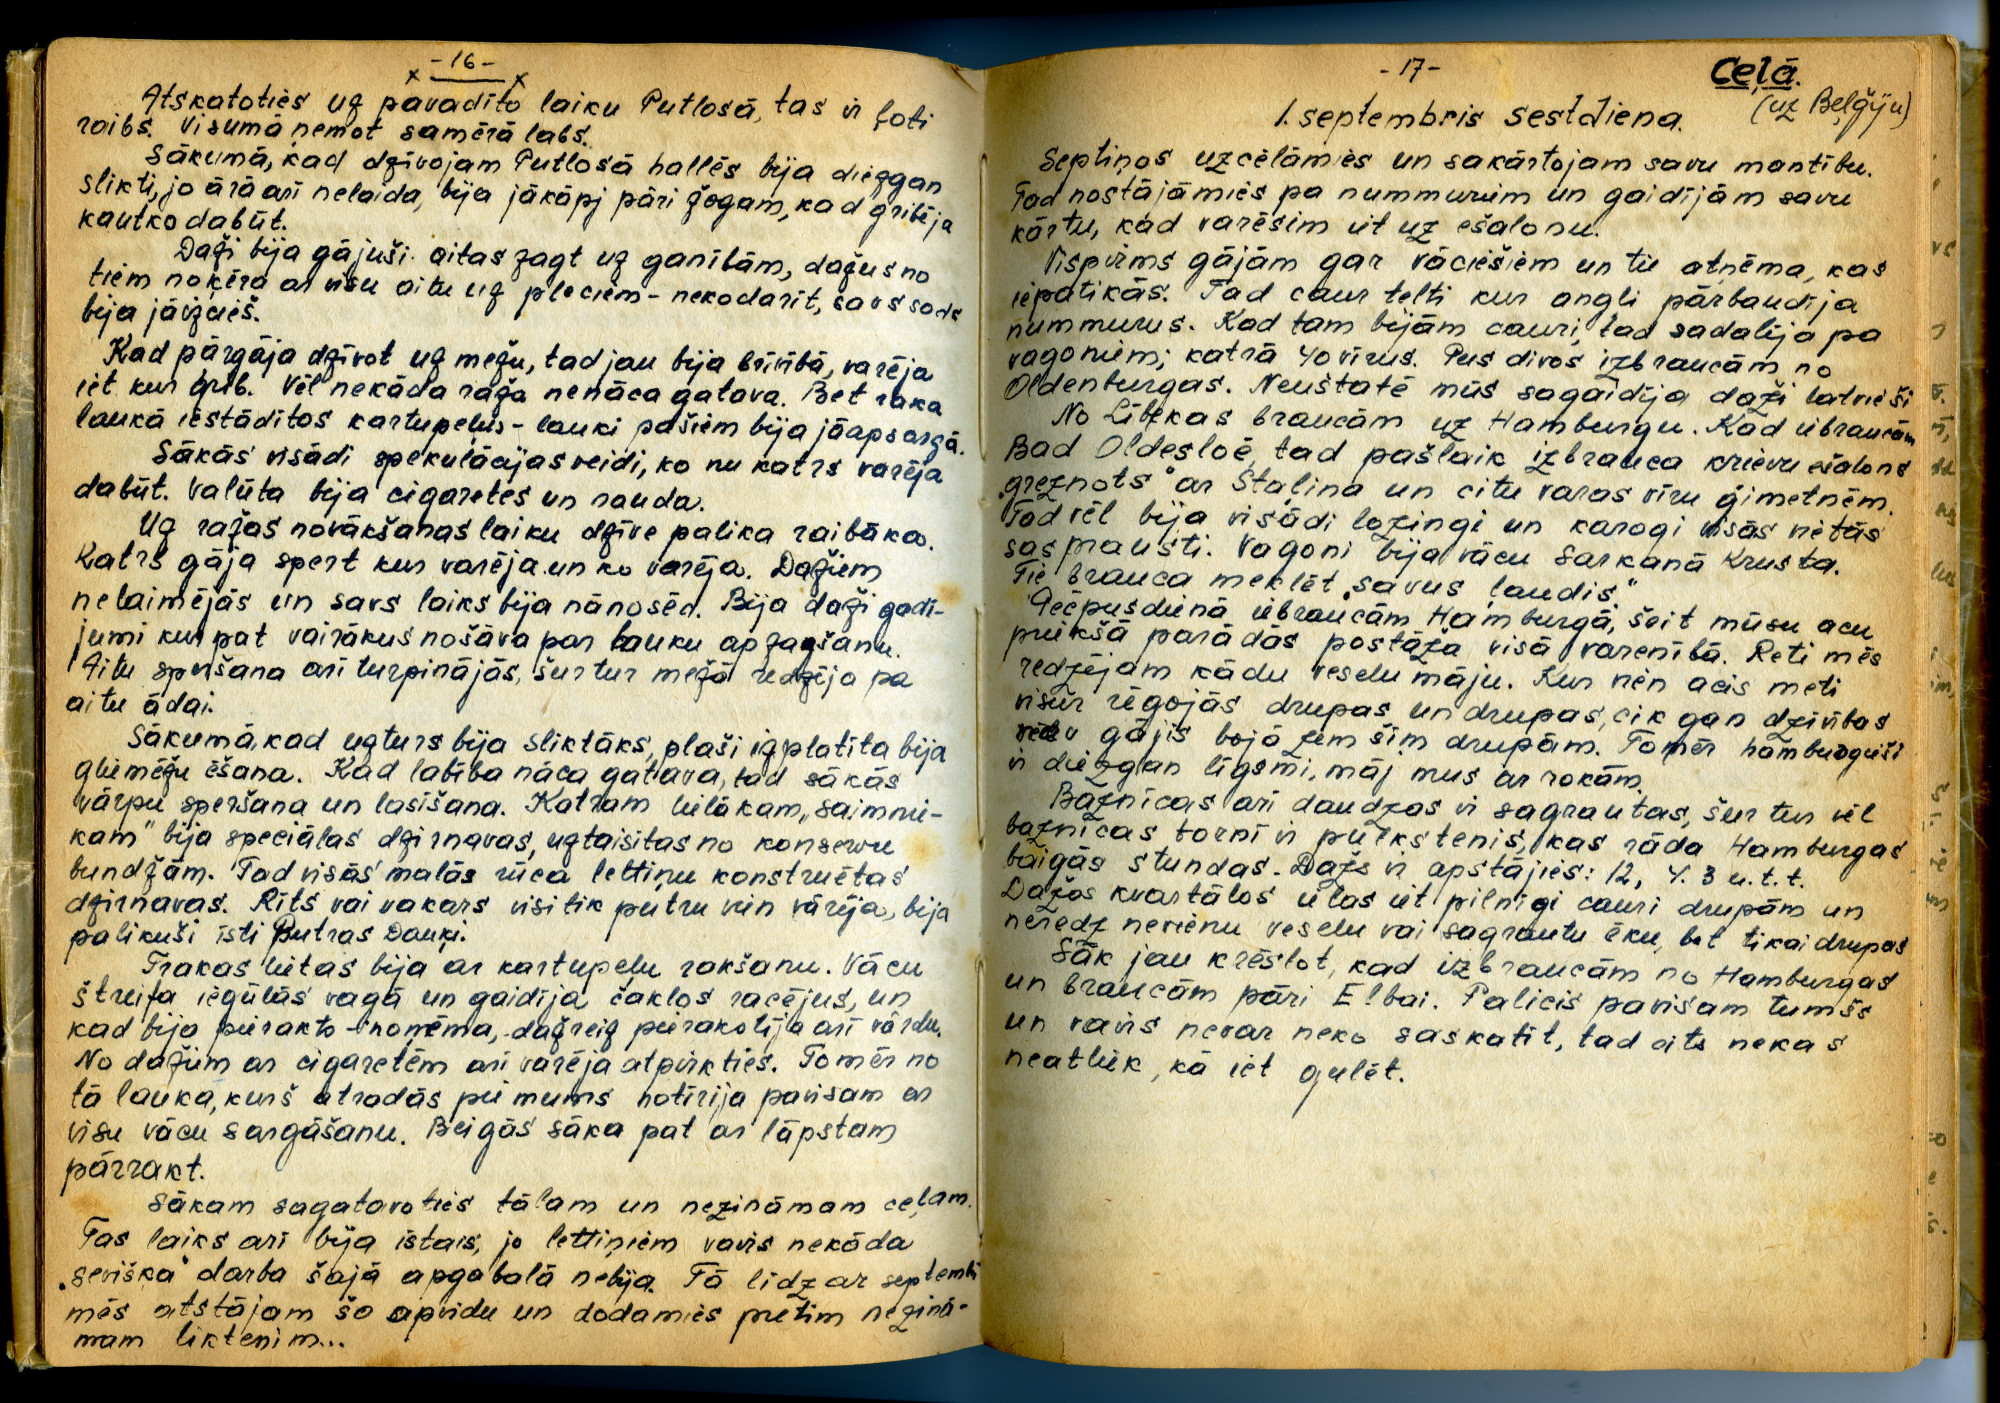 -16-
x x
Atskatoties uz pavadīto laiku Putlosā, tas ir ļoti
raibs. Visumā ņemot samērā labs.
Sākumā, kad dzīvojam Putlosā hallēs bija diezgan
slikti, jo ārā arī nelaida, bija jākāpj pāri žogam, kad gribēja
kautko dabūt.
Daži bija gājuši aitas zagt uz ganībām, dažus no
tiem noķēra ar visu aitu uz pleciem - nekodarīt, savs sods
bija jāizcieš.
Kad pārgāja dzīvot uz mežu, tad jau bija brīvībā, varēja
iet kur grib. Vēl nekāda raža nenāca gatava. Bet raka
laukā iestādītos kartupeļus - lauki pašiem bija jāapsargā.
Sākās visādi spekulācijas veidi, ko nu katrs varēja
dabūt. Valūta bija cigaretes un nauda.
Uz ražas novākšanas laiku dzīve palika raibāka.
Katrs gāja spert kur varēja un ko varēja. Dažiem
nelaimējās un savs laiks bija nānosēd. Bija daži gadī-
jumi kur pat vairākus nošāva par lauku apzagšanu.
Aitu speršana arī turpinājās, šur tur mežā redzēja pa
aitu ādai.
Sākumā, kad uzturs bija sliktāks, plaši izplatīta bija
gliemežu ēšana. Kad labība nāca gatava, tad sākās
vārpu speršana un lasīšana. Katram lielākam „saimnie-
kam" bija speciālas dzirnavas, uztaisītas no konservu
bundžām. Tad visās malās rūca lettiņu konstruētas
dzirnavas. Rīts vai vakars visi tik putru vien vārēja, bija
palikuši īsti Putras Dauķi.
Trakas lietas bija ar kartupeļu rakšanu. Vācu
štreifa iegūlās vagā un gaidīja čaklos racējus, un
kad bija pierakts - noņēma, dažreiz pierakstīja arī vārdu.
No dažiem ar cigaretēm arī varēja atpirkties. Tomēr no
tā lauka, kurš atradās pie mums notīrija pavisam ar
visu vācu sargāšanu. Beigās sāka pat ar lāpstam
pārrakt.
Sākam sagatavoties tālam un nezināmam ceļam.
Tas laiks arī bija īstais, jo lettiņiem vairs nekāda
„sevišķa" darba šajā apgabalā nebija. Tā līdz ar septembri
mēs atstājam šo apvidu un dodamies pretim nezinā-
mam liktenim...
-17-
Ceļā.
(uz Beļģiju)
1. septembris sestdiena.
Septiņos uzcēlāmies un sakārtojam savu mantību.
Tad nostājāmies pa nummuriem un gaidījām savu
kārtu, kad varēsim iet uz ešalonu.
Vispirms gājām gar vāciešiem un tie atņēma, kas
iepatikās. Tad caur telti kur angli pārbaudīja
nummurus. Kad tam bijām cauri, tad sadalīja pa
vagoniem; katrā 40 vīrus. Pus divos izbraucām no
Oldenburgas. Neuštatē mūs sagaidīja daži latvieši
No Lībekas braucām uz Hamburgu. Kad iebraucām
Bad Oldesloē, tad pašlaik izbrauca krievu ešalons
„greznots" ar Staļina un citu varas vīru ģimetnēm.
Tad vēl bija visādi lozingi un karogi visās vietās
sasprausti. Vagoni bija vācu Sarkanā Krusta.
Tie brauca meklēt „savus ļaudis".
Pēcpusdienā iebraucām Hamburgā, šeit mūsu acu
priekšā parādās postāža visā varenībā. Reti mēs
redzējam kādu veselu māju. Kur vien acis meti
visur rēgojās drupas un drupas, cik gan dzīvības
gājis bojā zem šīm drupām. Tomēr hamburguši
ir diezgan līgsmi, māj mus ar rokām.
Baznīcas arī daudzas ir sagrautas, šur tur vēl
baznīcas tornī ir pulkstenis, kas rāda Hamburgas
baigās stundas. Dažs ir apstājies: 12, 4. 3 u.t.t.
Dažos kvartālos ielas iet pilnīgi cauri drupām un
neredz nevienu veselu vai sagrautu ēku, bet tikai drupas
Sāk jau krēslot, kad izbraucām no Hamburgas
un braucām pāri Elbai. Palicis pavisam tumšs
un vairs nevar neko saskatīt, tad cits nekas
neatliek, kā iet gulēt.